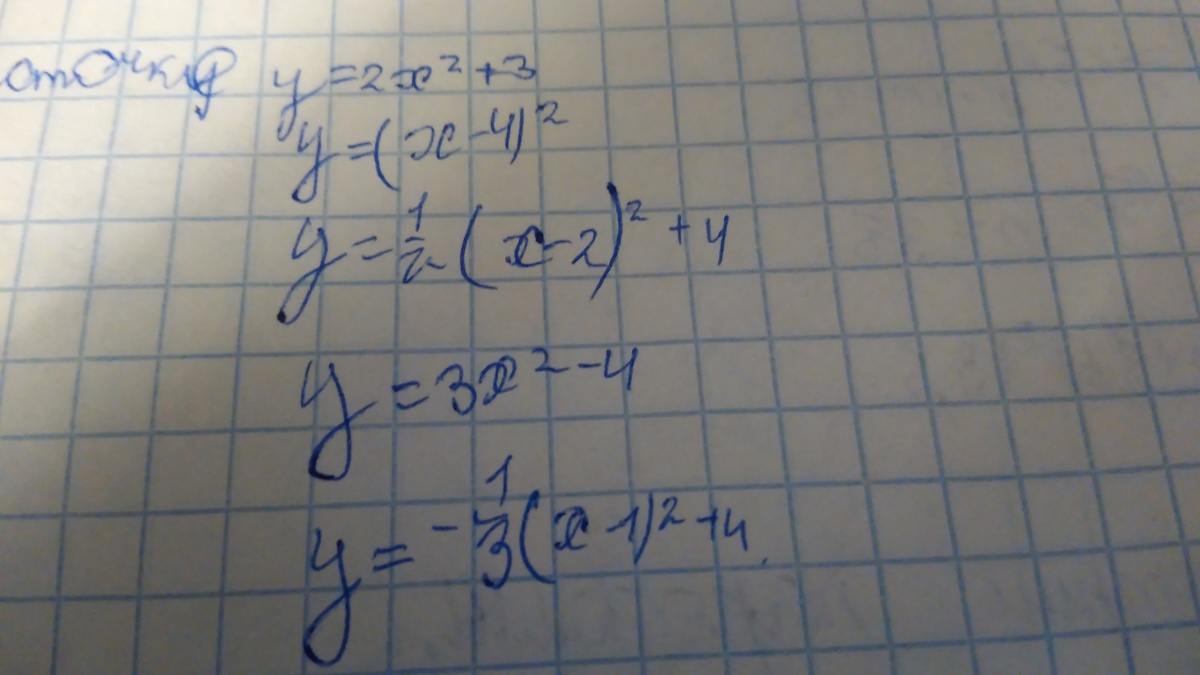 y = 2x² + 3
y = (x - 4)²
y = 1/2 (x - 2)² + 4
y = 3x² - 4
y = - 1/3 (x - 1)² + 4